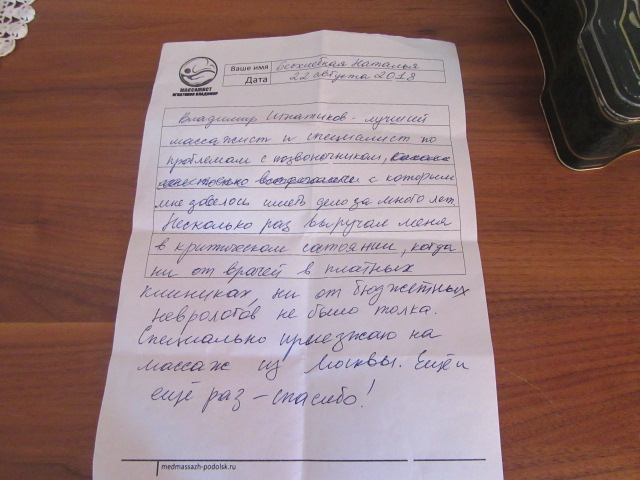 Ваше имя
Наталья
Дата 22 августа 2018
МАССАЖИСТ
ИГНАТИКОВ ВЛАДИМИР
Владимир Игнатиков - лучший
массажист и специалист по
проблемам с позвоночником,
с которым
мне довелось иметь дело за много лет.
Несколько раз выручал меня
в критическом состоянии, когда
ни от врачей в платных
клиниках, ни от бюджетных
неврологов не было толка.
Специально приезжаю на
массаж из Москвы. Ещё и
ещё раз - спасибо!
medmassazh-podolsk.ru